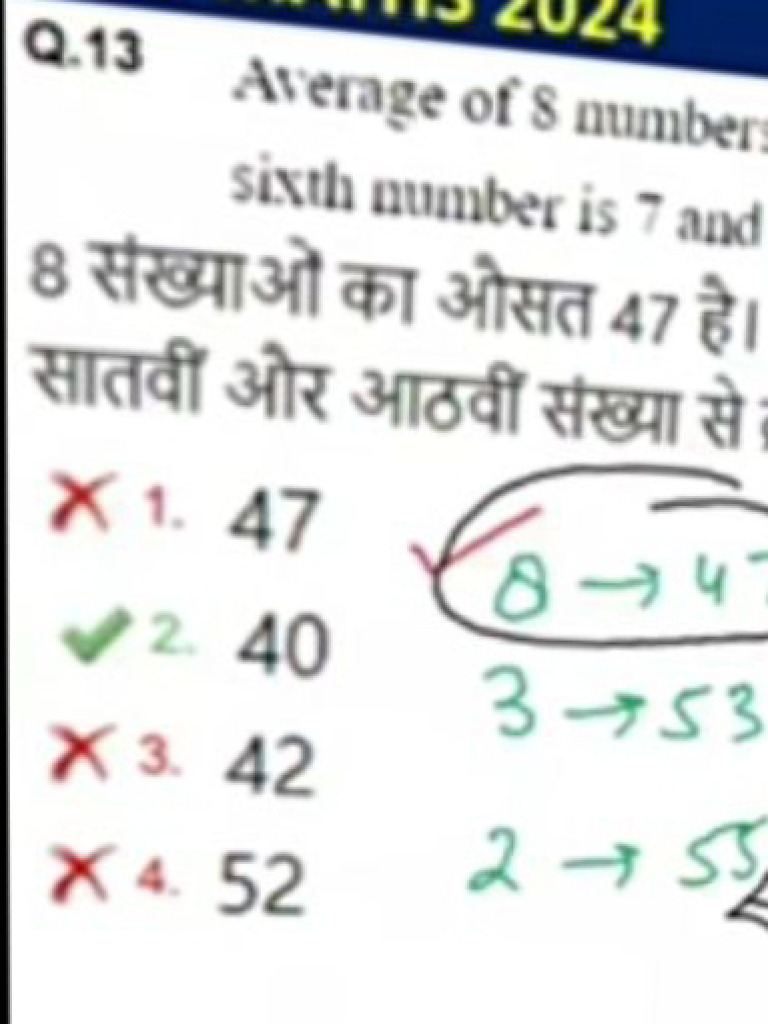 2024
Q.13
Average of 8 numbers
sixth number is 7 and
8 संख्याओं का औसत 47 है।
सातवीं और आठवीं संख्या से
1. 47
8 → 47
2. 40
3 → 53
3. 42
2 → 55
4. 52